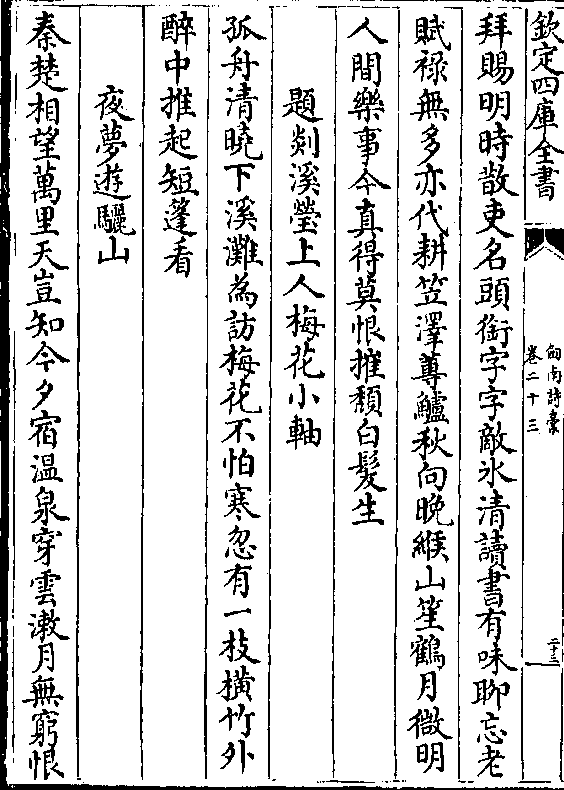 欽定四庫全書
劒南詩稾
卷二十三
二十三
拜賜明時散吏名頭銜字字敵氷清讀書有味聊忘老
賦祿無多亦代耕笠澤蓴鱸秋向晚緱山笙鶴月微明
人間樂事今真得莫恨摧頽白髮生
題剡溪瑩上人梅花小軸
孤舟清曉下溪灘為訪梅花不怕寒忽有一枝橫竹外
醉中推起短篷看
夜夢遊驪山
秦楚相望萬里天豈知今夕宿温泉穿雲漱月無窮恨